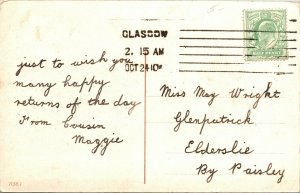 GLASGOW
2. 15 AM
OCT 24 10
just to wish you
many happy
returns of the day
From Cousin
Maggie
Miss May Wright
Glenpatrick
Elderslie
By Paisley